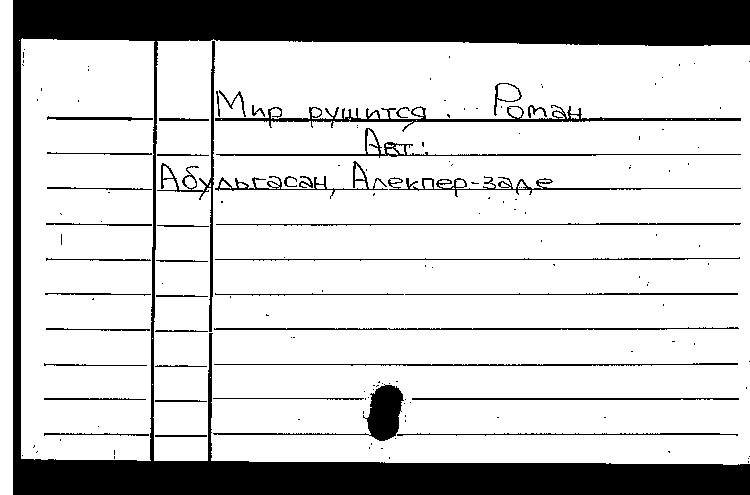 Мир рушится. Роман
Авт.:
Абульгасан, Алекпер-заде